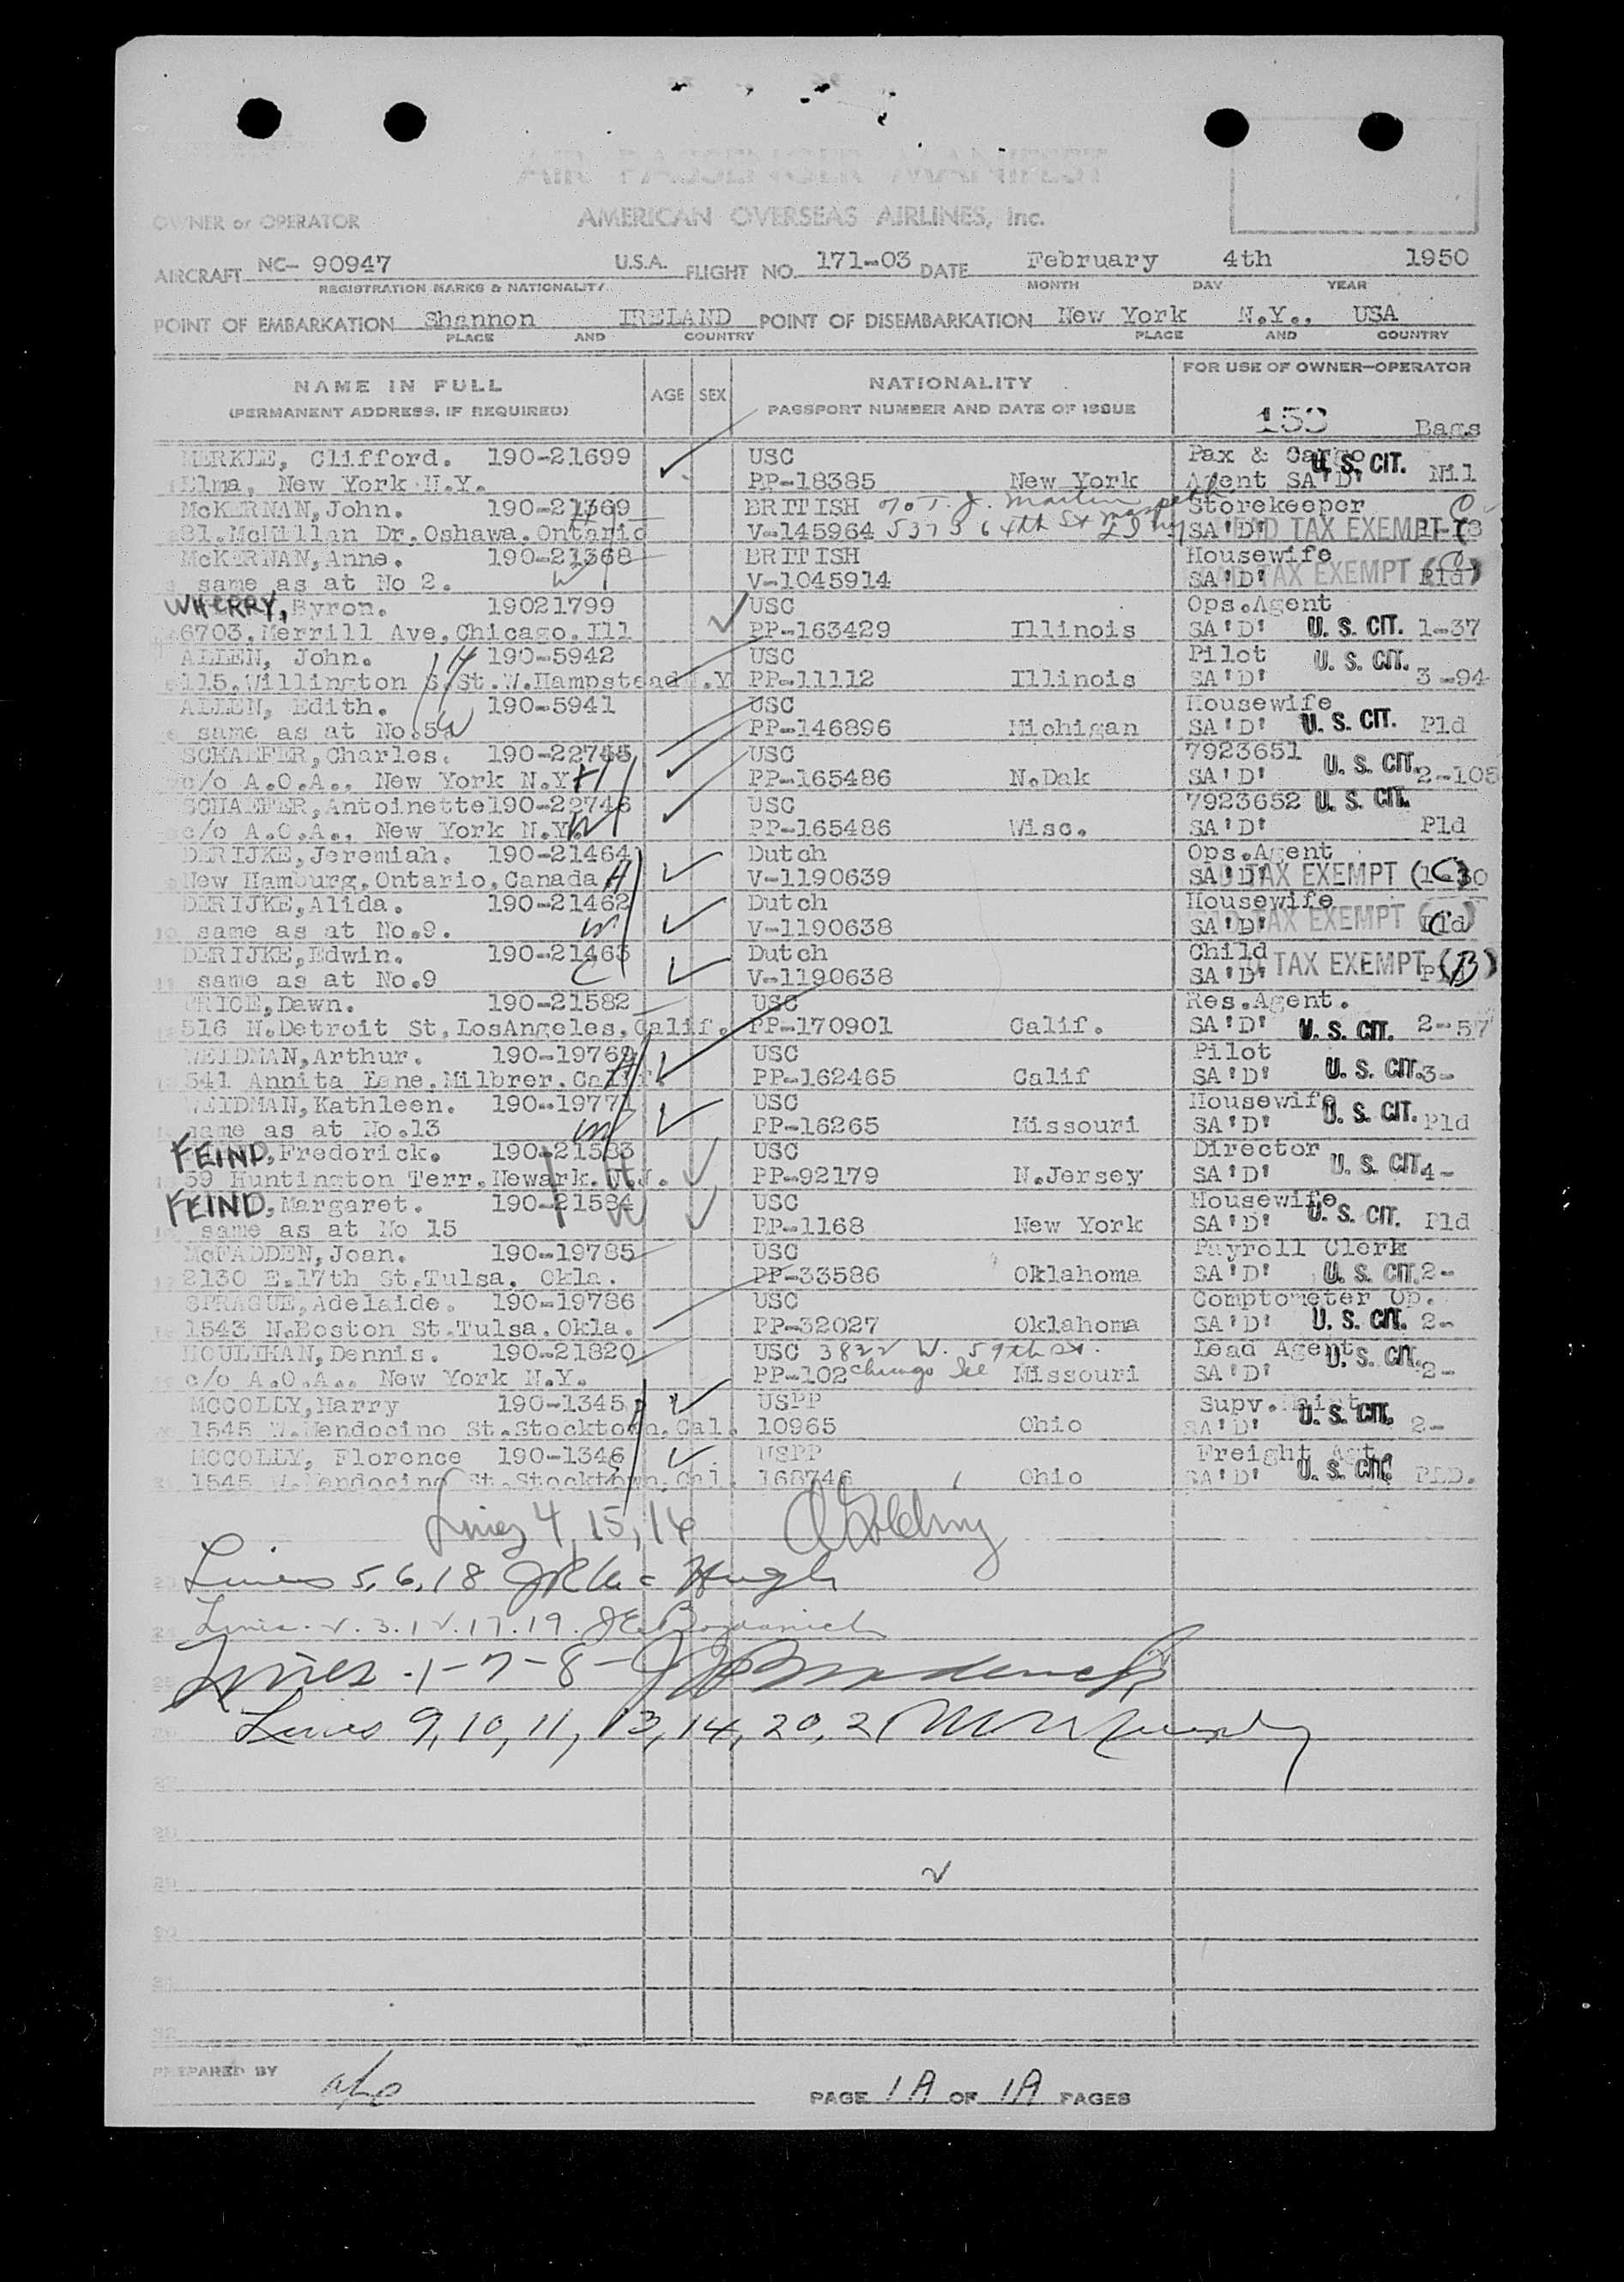 AIR PASSENGER MANIFEST
OWNER or OPERATOR AMERICAN OVERSEAS AIRLINES, Inc.
AIRCRAFT NC- 90947 U.S.A. FLIGHT NO. 171-03 DATE February 4th 1950
REGISTRATION MARKS & NATIONALITY MONTH DAY YEAR
POINT OF EMBARKATION Shannon IRELAND POINT OF DISEMBARKATION New York N.Y., USA
PLACE AND COUNTRY PLACE AND COUNTRY
NAME IN FULL AGE SEX NATIONALITY FOR USE OF OWNER-OPERATOR
(PERMANENT ADDRESS, IF REQUIRED) PASSPORT NUMBER AND DATE OF ISSUE 153 Bags
MERKLE, Clifford. 190-21699 USC Pax & Cargo U. S. CIT.
1 Elma, New York N.Y. PP-18385 New York Agent SA'D' Nil
McKERNAN, John. 190-21369 BRITISH % T. J. Martin Storekeeper
81.McMillan Dr.Oshawa.Ontario V-145964 5373 64th St SA'D' TAX EXEMPT
McKERNAN, Anne. 190-21368 BRITISH Housewife
same as at No 2. W V-1045914 SA'D' TAX EXEMPT (C) Pld
WHERRY, Byron. 19021799 USC Ops.Agent
6703.Merrill Ave,Chicago.Ill PP-163429 Illinois SA'D' U. S. CIT. 1-37
ALLEN, John. H 190-5942 USC Pilot U. S. CIT.
115.Willington S.St.W.Hampstead .Y PP-11112 Illinois SA'D' 3-94
ALLEN, Edith. 190-5941 USC Housewife
same as at No.5 W PP-146896 Michigan SA'D' U. S. CIT. Pld
SCHAEFER, Charles. 190-22745 USC 7923651 U. S. CIT.
c/o A.O.A., New York N.Y. H PP-165486 N.Dak SA'D' 2-105
SCHAEFER, Antoinette 190-22746 USC 7923652 U. S. CIT.
c/o A.O.A., New York N.Y. W PP-165486 Wisc. SA'D' Pld
DERIJKE, Jeremiah. 190-21464 Dutch Ops.Agent
New Hamburg.Ontario,Canada H V-1190639 SA'D' TAX EXEMPT (C)
DERIJKE, Alida. 190-21462 Dutch Housewife
10 same as at No.9. W V-1190638 SA'D' TAX EXEMPT (C) Pld
DERIJKE, Edwin. 190-21463 Dutch Child
11 same as at No.9 C V-1190638 SA'D' TAX EXEMPT (B)
PRICE, Dawn. 190-21582 USC Res.Agent.
516 N.Detroit St,LosAngeles,Calif. PP-170901 Calif. SA'D' U. S. CIT. 2-57
WEIDMAN, Arthur. 190-19769 USC Pilot
541 Annita Lane.Milbrer.Calif. H PP-162465 Calif SA'D' U. S. CIT. 3-
WEIDMAN, Kathleen. 190-19771 USC Housewife
same as at No.13 W PP-16265 Missouri SA'D' U. S. CIT. Pld
FEIND, Frederick. 190-21583 USC Director
59 Huntington Terr.Newark.N.J. H PP-92179 N.Jersey SA'D' U. S. CIT. 4-
FEIND, Margaret. 190-21584 USC Housewife
same as at No 15 W PP-1168 New York SA'D' U. S. CIT. Pld
McFADDEN, Joan. 190-19785 USC Payroll Clerk
2130 E.17th St.Tulsa. Okla. PP-33586 Oklahoma SA'D' U. S. CIT. 2-
SPRAGUE, Adelaide. 190-19786 USC Comptometer Op.
1543 N.Boston St.Tulsa.Okla. PP-32027 Oklahoma SA'D' U. S. CIT. 2-
HOULIHAN, Dennis. 190-21820 USC 3822 W. 59th St. Lead Agent
c/o A.O.A., New York N.Y. PP-102 Chicago Ill Missouri SA'D' U. S. CIT. 2-
MCCOLLY, Harry 190-1345 USPP Supv.Maint
1545 W.Mendocino St.Stocktown.Cal. 10965 Ohio SA'D' U. S. CIT. 2-
MCCOLLY, Florence 190-1346 USPP Freight Agt.
1545 W.Mendocino St.Stocktown,Cal. 168746 Ohio SA'D' U. S. CIT. PLD.
Lines 4, 15, 16
Lines 5, 6, 18
Lines 2. 3. 12. 17. 19.
Lines -1-7-8-
Lines 9, 10, 11, 13, 14, 20, 21
27
28
29
30
31
32
PREPARED BY
PAGE 1A OF 1A PAGES